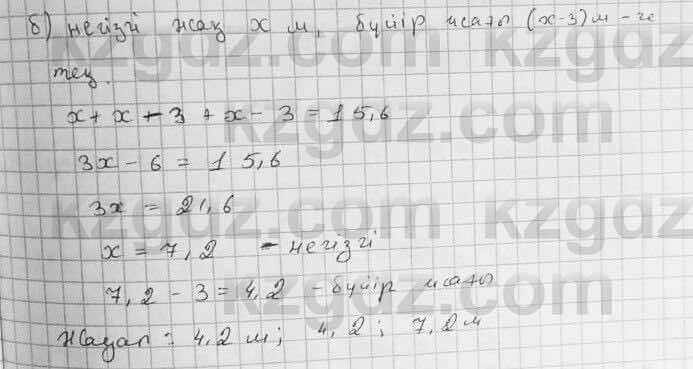 б) негізгі жақ х м, бүйір жағы (х-3) м - ге
тең.
х + х - 3 + х - 3 = 15,6
3х - 6 = 15,6
3х = 21,6
х = 7,2 - негізгі
7,2 - 3 = 4,2 - бүйір жағы
Жауап: 4,2 м; 4,2; 7,2 м
kzgdz.com